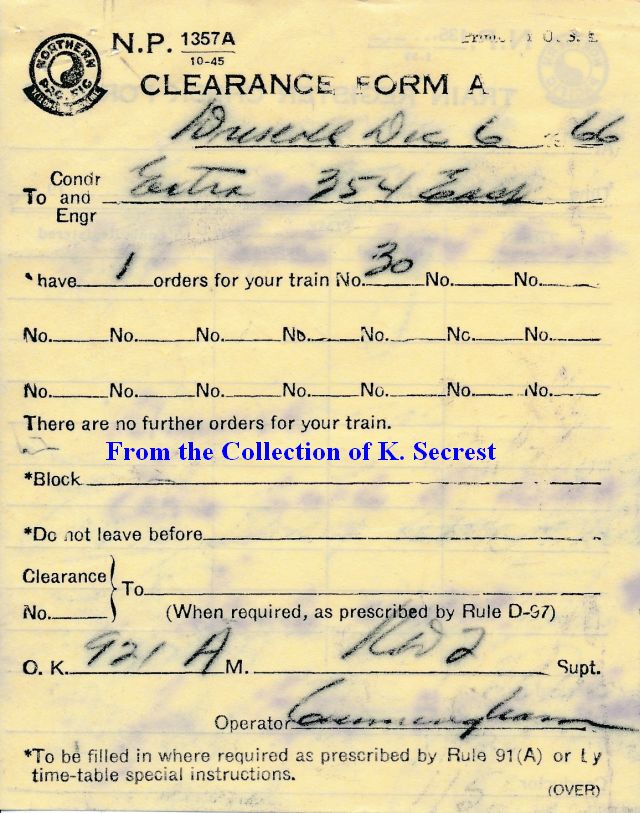 NORTHERN PACIFIC
N.P. 1357A
10-45
CLEARANCE FORM A
Driscoll Dec 6 1966
Condr
To and Extra 354 East
Engr
*have 1 orders for your train No. 30 No. No.
No. No. No. No. No. No. No.
No. No. No. No. No. No. No.
There are no further orders for your train.
From the Collection of K. Secrest
*Block
*Do not leave before
Clearance To
No. (When required, as prescribed by Rule D-97)
O. K. 921 A M. Supt.
Operator Cunningham
*To be filled in where required as prescribed by Rule 91(A) or by
time-table special instructions.
(OVER)